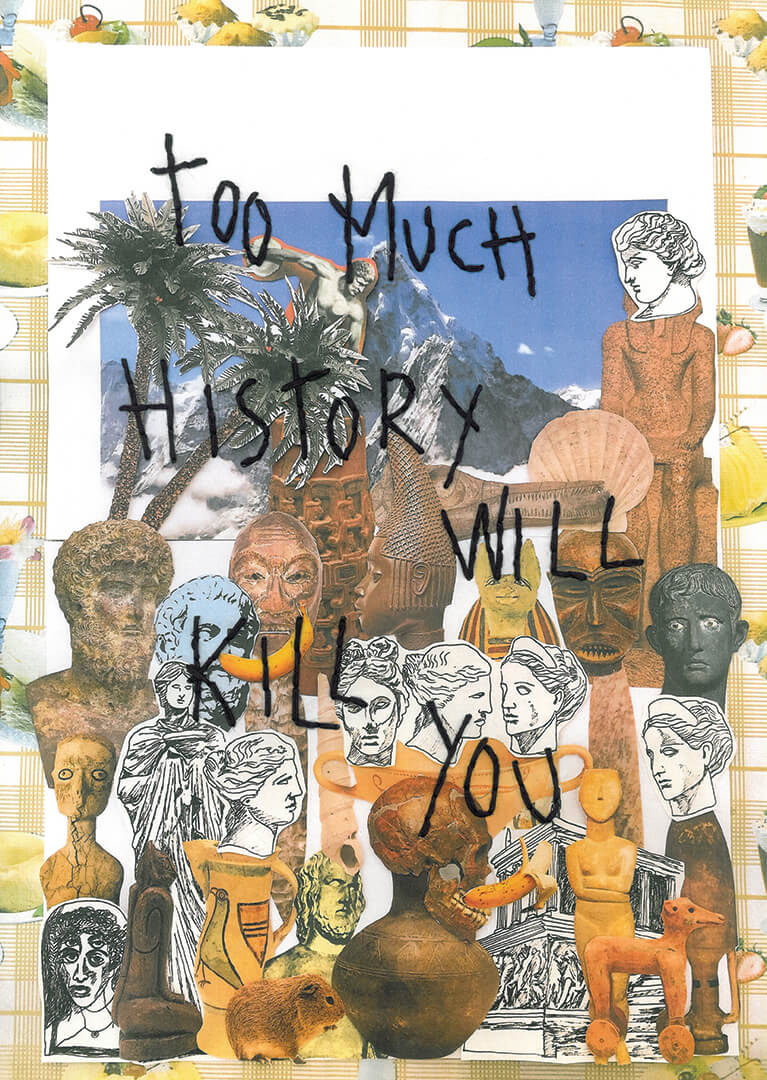 TOO MUCH
HISTORY
WILL
KILL
YOU